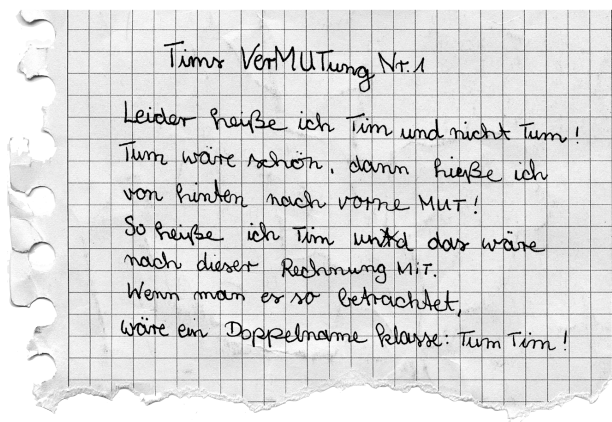 Tims VerMUTung Nr. 1
Leider heiße ich Tim und nicht Tum!
Tum wäre schön, dann hieße ich
von hinten nach vorne MUT!
So heiße ich Tim und das wäre
nach dieser Rechnung MiT.
Wenn man es so betrachtet,
wäre ein Doppelname klasse: Tum Tim!